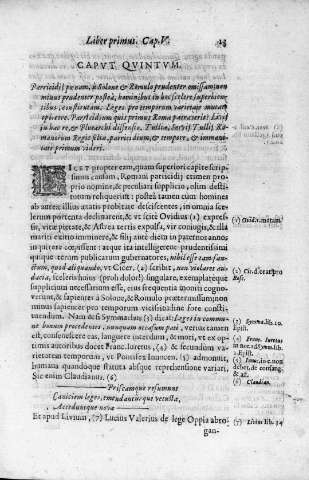 Liber primus. Cap. V. 23
CAPUT QUINTUM.
Parricidij pœnam, à Solone & Romulo prudenter omissam, non
minus prudenter posteà, hominibus in hoc scelere superioribus
tibus, constitutam. Leges pro temporum varietate mutari
oportere. Parricidium quis primus Romæ patraverit: Livij
in hac re, & Plutarchi dissensio. Tullia, Servij Tullij, Ro-
manorum Regis filia, parricidium, & tempore, & immani-
tate primum videri.
LICET propter eam, quam superiori capite scrip-
simus causam, Romani parricidij crimen pro-
prio nomine, & peculiari supplicio, olim desti-
tutum reliquerint: posteà tamen cum homines
ab antiqua illius ætatis probitate desciscentes, in omnia sce-
lerum portenta declinarent, & ut scitè Ovidius (1) expres-
sit, victa pietate, & Astrea terris expulsa, vir conjugis, & illa
mariti exitio imminerent, & filij ante diem in paternos annos
inquirere cœpissent: atque ita intelligerent prudentissimi
quique rerum publicarum gubernatores, nihil esse tam san-
ctum, quod aliquando, ut Cicer. (2) scribit, non violaret au-
dacia, sceleris hujus (proh dolor!) singulare, exemplareque
supplicium necessarium esse, ejus frequentia monitis cogno-
verunt, & sapienter à Solone, & Romulo prætermissum non
minus sapienter pro temporum vicissitudine fore consti-
tuendum. Nam ut Symmachus (3) dicat: Leges in commu-
ne bonum procedentes, nunquam occasum pati, verius tamen
est, consuescere eas, languere interdum, & mori, vt ex op-
timis authoribus docet Franc. Iuretus, (4) & secundum va-
rietatem temporum, vt Pontifex Innocen. (5) admonuit,
humana quandoque statuta absque reprehensione variari.
Sic enim Claudianus. (6)
Priscamque resumunt
Caniciem leges, emendanturque vetustæ,
Acceduntque novæ
Et apud Livium, (7) Lucius Valerius de lege Oppia abro-
gan-
(1) Ovid. 1. metam.
(2) Cic. d. orat. pro
Rosc.
(3) Symma. lib. 10.
Epist.
(4) Franc. Iuretus
in not. ad Sym. lib.
1. Epist.
(5) Innoc. in c. non
debet, de consang.
& af.
(6) Claudian.
(7) Livius lib. 34